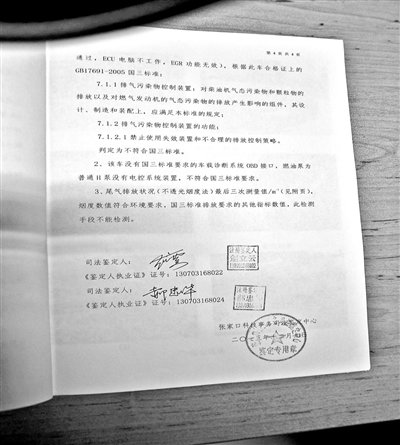 第 4 页 共 4 页
通过，ECU 电脑不工作，EGR 功能无效)。根据此车合格证上的
GB17691-2005 国三标准：
7.1.1 排气污染物控制装置：对柴油机气态污染物和颗粒物的
排放以及对燃气发动机的气态污染物的排放产生影响的组件，其设
计、制造和装配上，应满足本标准的规定；
7.1.2 排气污染物控制装置的功能：
7.1.2.1 禁止使用失效装置和不合理的排放控制策略。
判定为不符合国三标准。
2、该车没有国三标准要求的车载诊断系统 OBD 接口，燃油泵为
普通 H 泵没有电控系统装置，不符合国三标准要求。
3、尾气排放状况(不透光烟度法)最后三次测量值/m⁻¹(见附页)，
烟度数值符合环境要求，国三标准排放要求的其他指标数值，此检测
手段不能检测。
司法鉴定人：
《鉴定人执业证》证号：130703168022
司法鉴定人：
《鉴定人执业证》证号：130703168024
张家口科技事务司法
中心
二〇
鉴定专用章